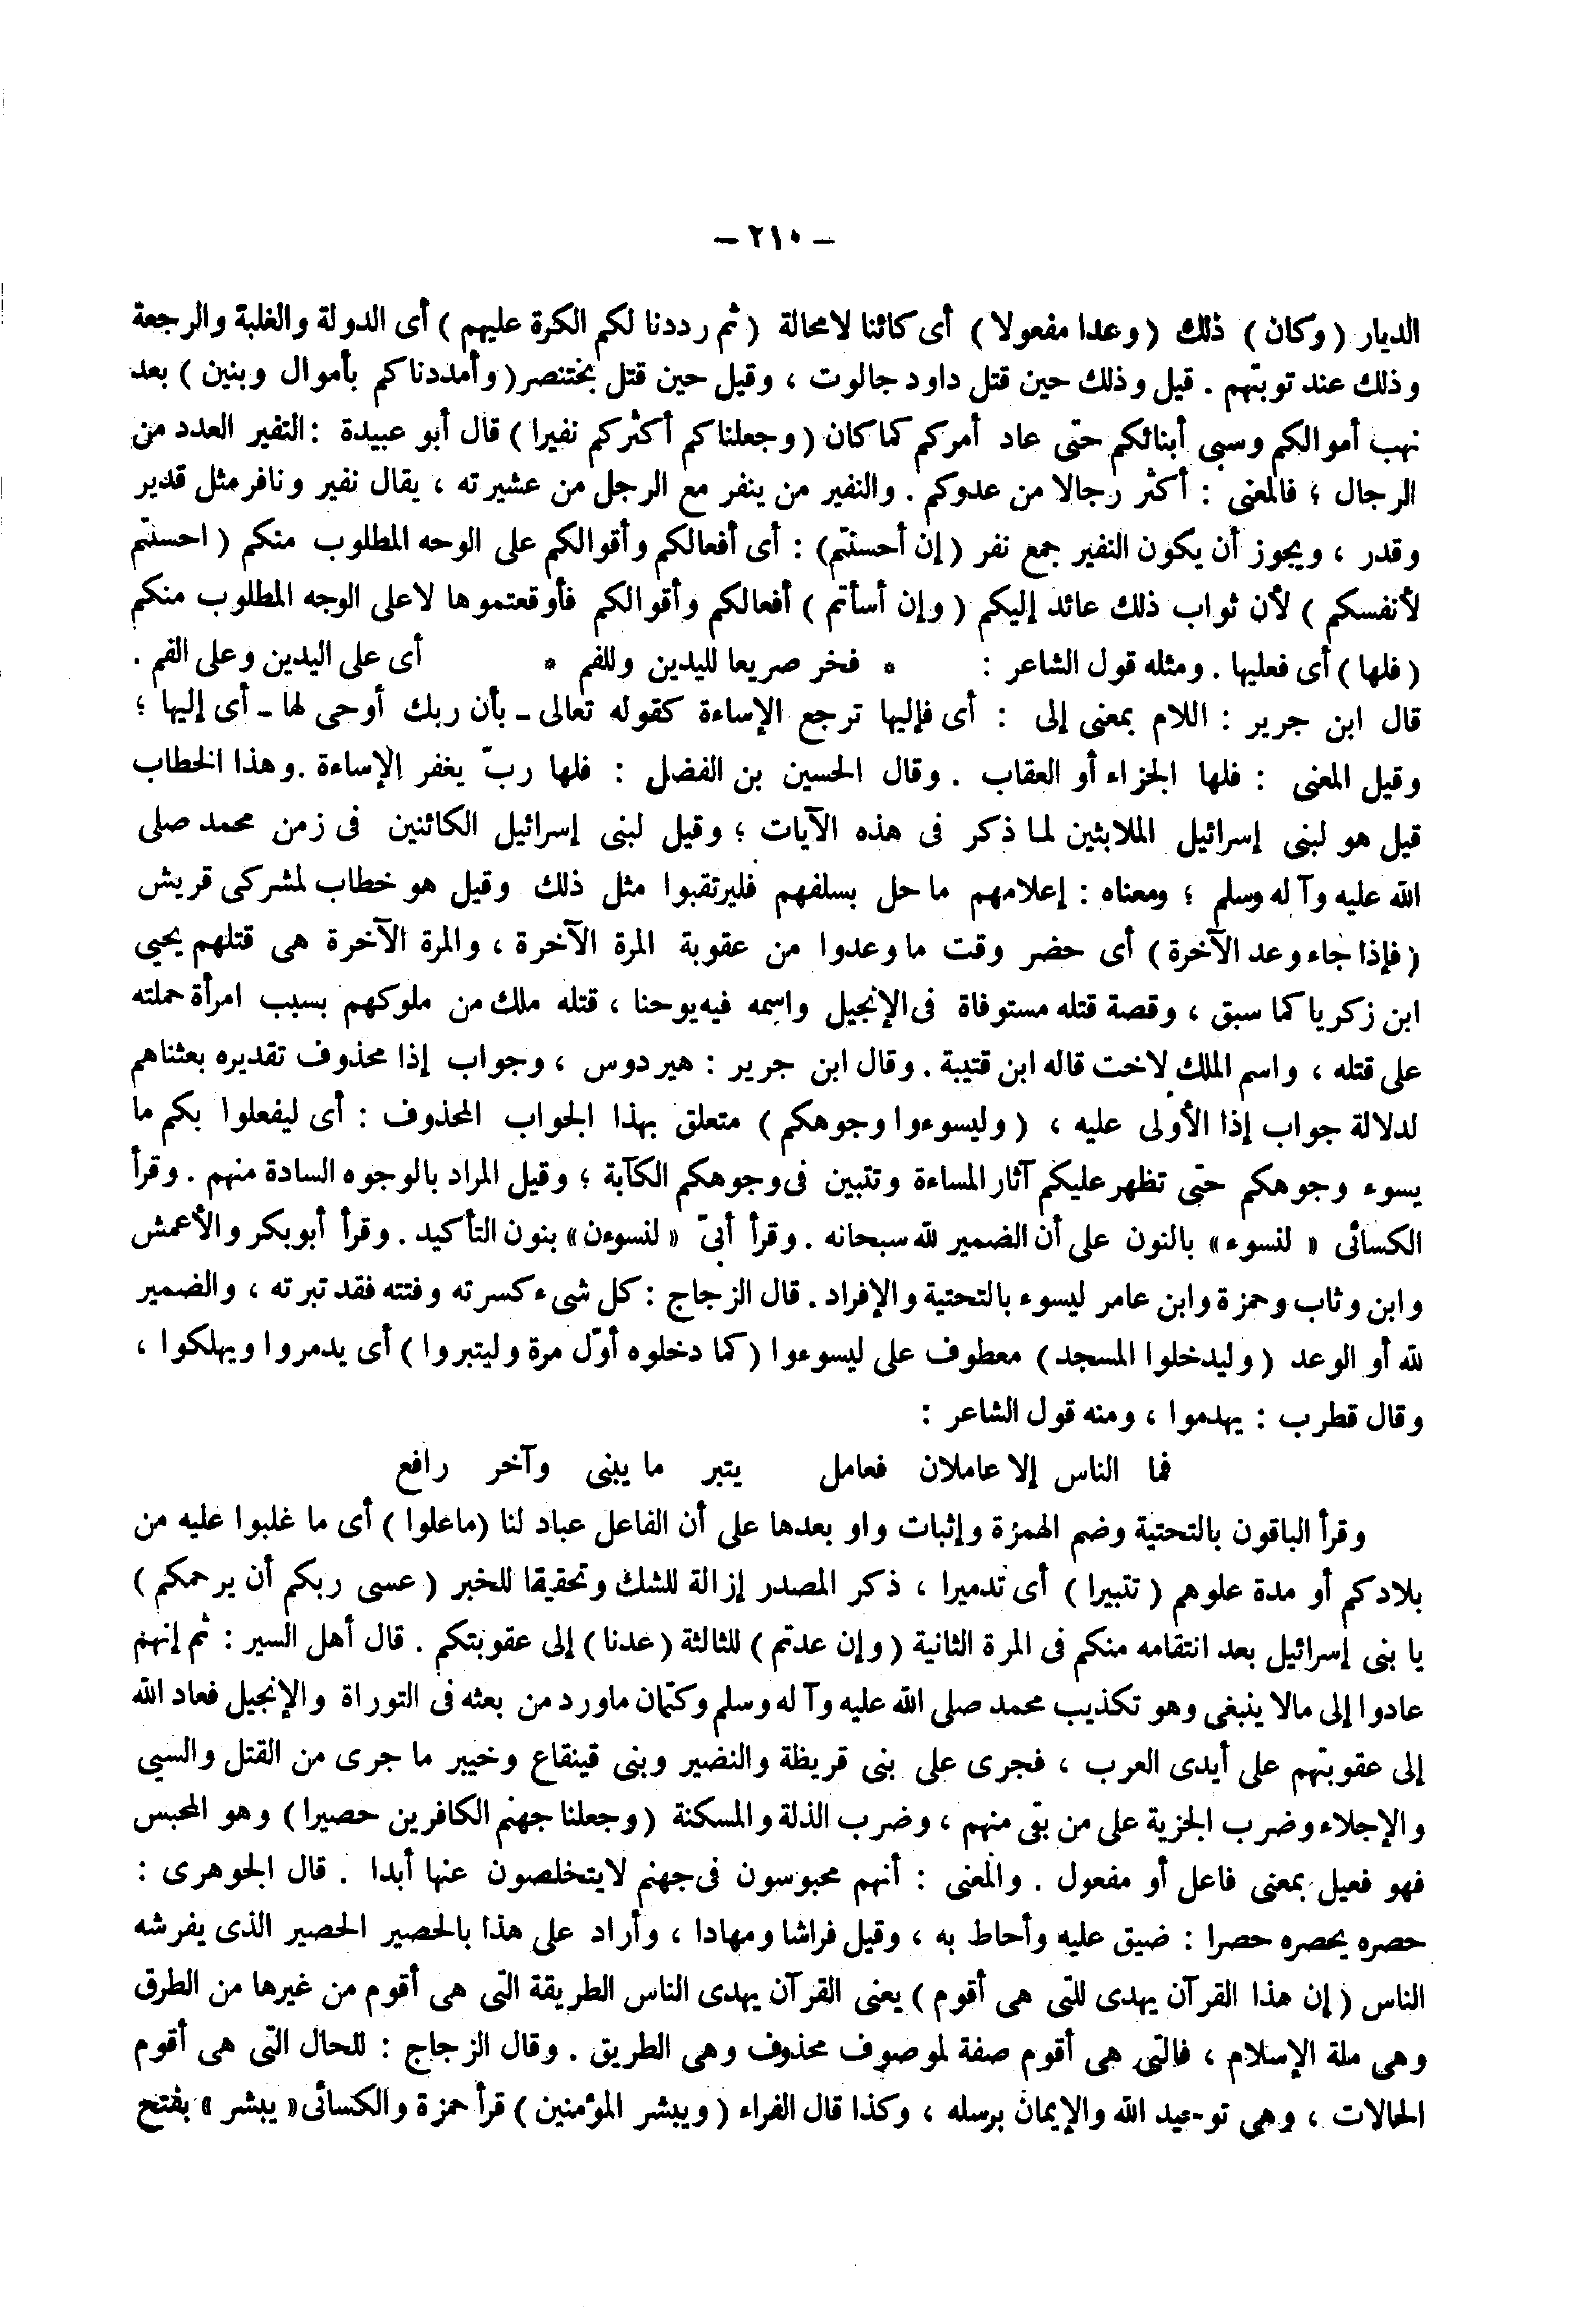 – ٢١٠ –
الديار ( وكان ) ذلك ( وعدا مفعولا ) أى كائنا لامحالة ( ثم رددنا لكم الكرة عليهم ) أى الدولة والغلبة والرجعة
وذلك عند توبتهم . قيل وذلك حين قتل داود جالوت ، وقيل حين قتل بختنصر ( وأمددناكم بأموال وبنين ) بعد
نهب أموالكم وسبى أبنائكم حتى عاد أمركم كما كان ( وجعلناكم أكثركم نفيرا ) قال أبو عبيدة : النفير العدد من
الرجال ؛ فالمعنى : أكثر رجالا من عدوكم . والنفير من ينفر مع الرجل من عشيرته ، يقال نفير ونافر مثل قدير
وقدر ، ويجوز أن يكون النفير جمع نفر ( إن أحسنتم ) : أى أفعالكم وأقوالكم على الوحه المطلوب منكم ( احسنتم
لأنفسكم ) لأن ثواب ذلك عائد إليكم ( وإن أسأتم ) أفعالكم وأقوالكم فأوقعتموها لاعلى الوجه المطلوب منكم
( فلها ) أى فعليها . ومثله قول الشاعر : * فخر صريعا لليدين وللفم * أى على اليدين وعلى الفم .
قال ابن جرير : اللام بمعنى إلى : أى فإليها ترجع الإساءة كقوله تعالى ـ بأن ربك أوحى لها ـ أى إليها ؛
وقيل المعنى : فلها الجزاء أو العقاب . وقال الحسين بن الفضل : فلها ربّ يغفر الإساءة . وهذا الخطاب
قيل هو لبنى إسرائيل الملابثين لما ذكر فى هذه الآيات ؛ وقيل لبنى إسرائيل الكائنين فى زمن محمد صلى
الله عليه وآله وسلم ؛ ومعناه : إعلامهم ماحل بسلفهم فليرتقبوا مثل ذلك وقيل هو خطاب لمشركى قريش
( فإذا جاء وعد الآخرة ) أى حضر وقت ماوعدوا من عقوبة المرة الآخرة ، والمرة الآخرة هى قتلهم يحيى
ابن زكريا كما سبق ، وقصة قتله مستوفاة فى الإنجيل واسمه فيه يوحنا ، قتله ملك من ملوكهم بسبب امرأة حملته
على قتله ، واسم الملك لاخت قاله ابن قتيبة . وقال ابن جرير : هيردوس ، وجواب إذا محذوف تقديره بعثناهم
لدلالة جواب إذا الأولى عليه ، ( وليسوءوا وجوهكم ) متعلق بهذا الجواب المحذوف : أى ليفعلوا بكم ما
يسوء وجوهكم حتى تظهر عليكم آثار المساءة وتتبين فى وجوهكم الكآبة ؛ وقيل المراد بالوجوه السادة منهم . وقرأ
الكسائى « لنسوء » بالنون على أن الضمير لله سبحانه . وقرأ أبىّ « لنسوءن » بنون التأكيد . وقرأ أبوبكر والأعمش
وابن وثاب وحمزة وابن عامر ليسوء بالتحتية والإفراد . قال الزجاج : كل شىء كسرته وفتته فقد تبرته ، والضمير
لله أو الوعد ( وليدخلوا المسجد ) معطوف على ليسوءوا ( كما دخلوه أوّل مرة وليتبروا ) أى يدمروا ويهلكوا ،
وقال قطرب : يهدموا ، ومنه قول الشاعر :
فما الناس إلا عاملان فعامل يتبر ما يبنى وآخر رافع
وقرأ الباقون بالتحتية وضم الهمزة وإثبات واو بعدها على أن الفاعل عباد لنا ( ماعلوا ) أى ما غلبوا عليه من
بلادكم أو مدة علوهم ( تتبيرا ) أى تدميرا ، ذكر المصدر إزالة للشك وتحقيقا للخبر ( عسى ربكم أن يرحمكم )
يا بنى إسرائيل بعد انتقامه منكم فى المرة الثانية ( وإن عدتم ) للثالثة ( عدنا ) إلى عقوبتكم . قال أهل السير : ثم إنهم
عادوا إلى مالا ينبغى وهو تكذيب محمد صلى الله عليه وآله وسلم وكتمان ماورد من بعثه فى التوراة والإنجيل فعاد الله
إلى عقوبتهم على أيدى العرب ، فجرى على بنى قريظة والنضير وبنى قينقاع وخيبر ما جرى من القتل والسبى
والإجلاء وضرب الجزية على من بقى منهم ، وضرب الذلة والمسكنة ( وجعلنا جهنم الكافرين حصيرا ) وهو المحبس
فهو فعيل بمعنى فاعل أو مفعول . والمعنى : أنهم محبوسون فى جهنم لايتخلصون عنها أبدا . قال الجوهرى :
حصره يحصره حصرا : ضيق عليه وأحاط به ، وقيل فراشا ومهادا ، وأراد على هذا بالحصير الحصير الذى يفرشه
الناس ( إن هذا القرآن يهدى للتى هى أقوم ) يعنى القرآن يهدى الناس الطريقة التى هى أقوم من غيرها من الطرق
وهى ملة الإسلام ، فالتى هى أقوم صفة لموصوف محذوف وهى الطريق . وقال الزجاج : للحال التى هى أقوم
الحالات ، وهى توحيد الله والإيمان برسله ، وكذا قال الفراء ( ويبشر المؤمنين ) قرأ حمزة والكسائى « يبشر » بفتح